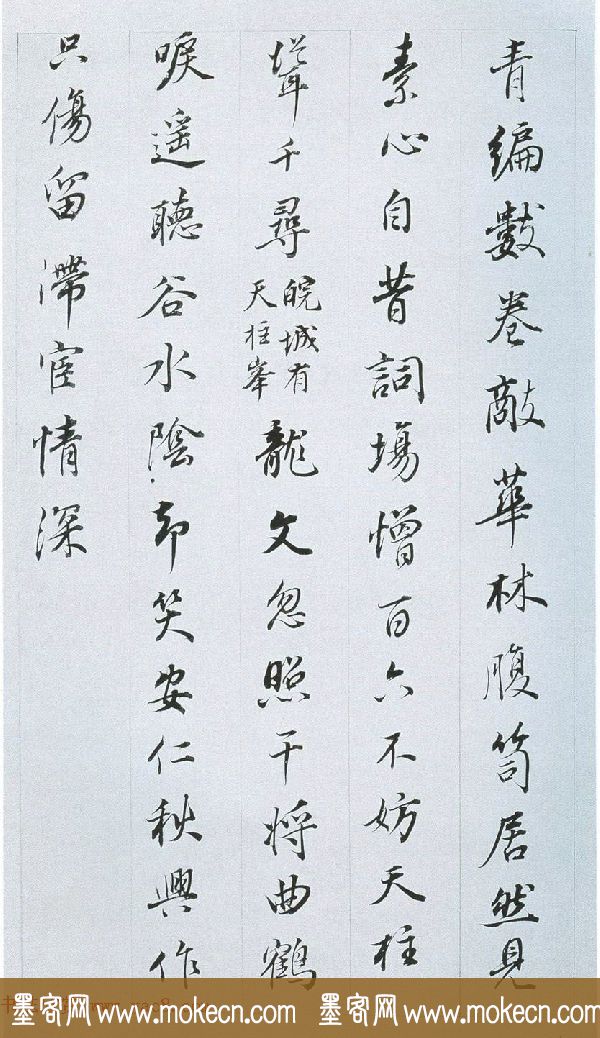 青編數卷敵華林腹笥居然見
素心自昔詞場憎百六不妨天柱
聳千尋皖城有
天柱峯龍文忽照干將曲鶴
唳遥聽谷水陰却笑安仁秋興作
只傷留滯宦情深
墨客网www.mokecn.com 墨客网www.mokecn.com